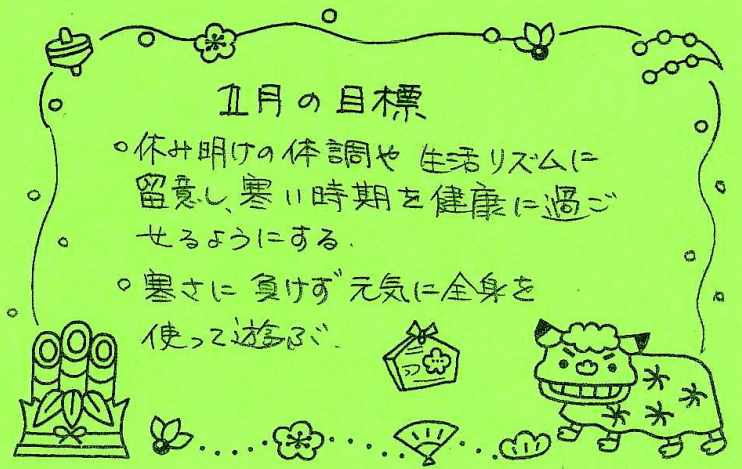 1月の目標
○休み明けの体調や 生活リズムに
留意し、寒い時期を健康に過ご
せるようにする.
○寒さに 負けず 元気に全身を
使って遊ぶ.